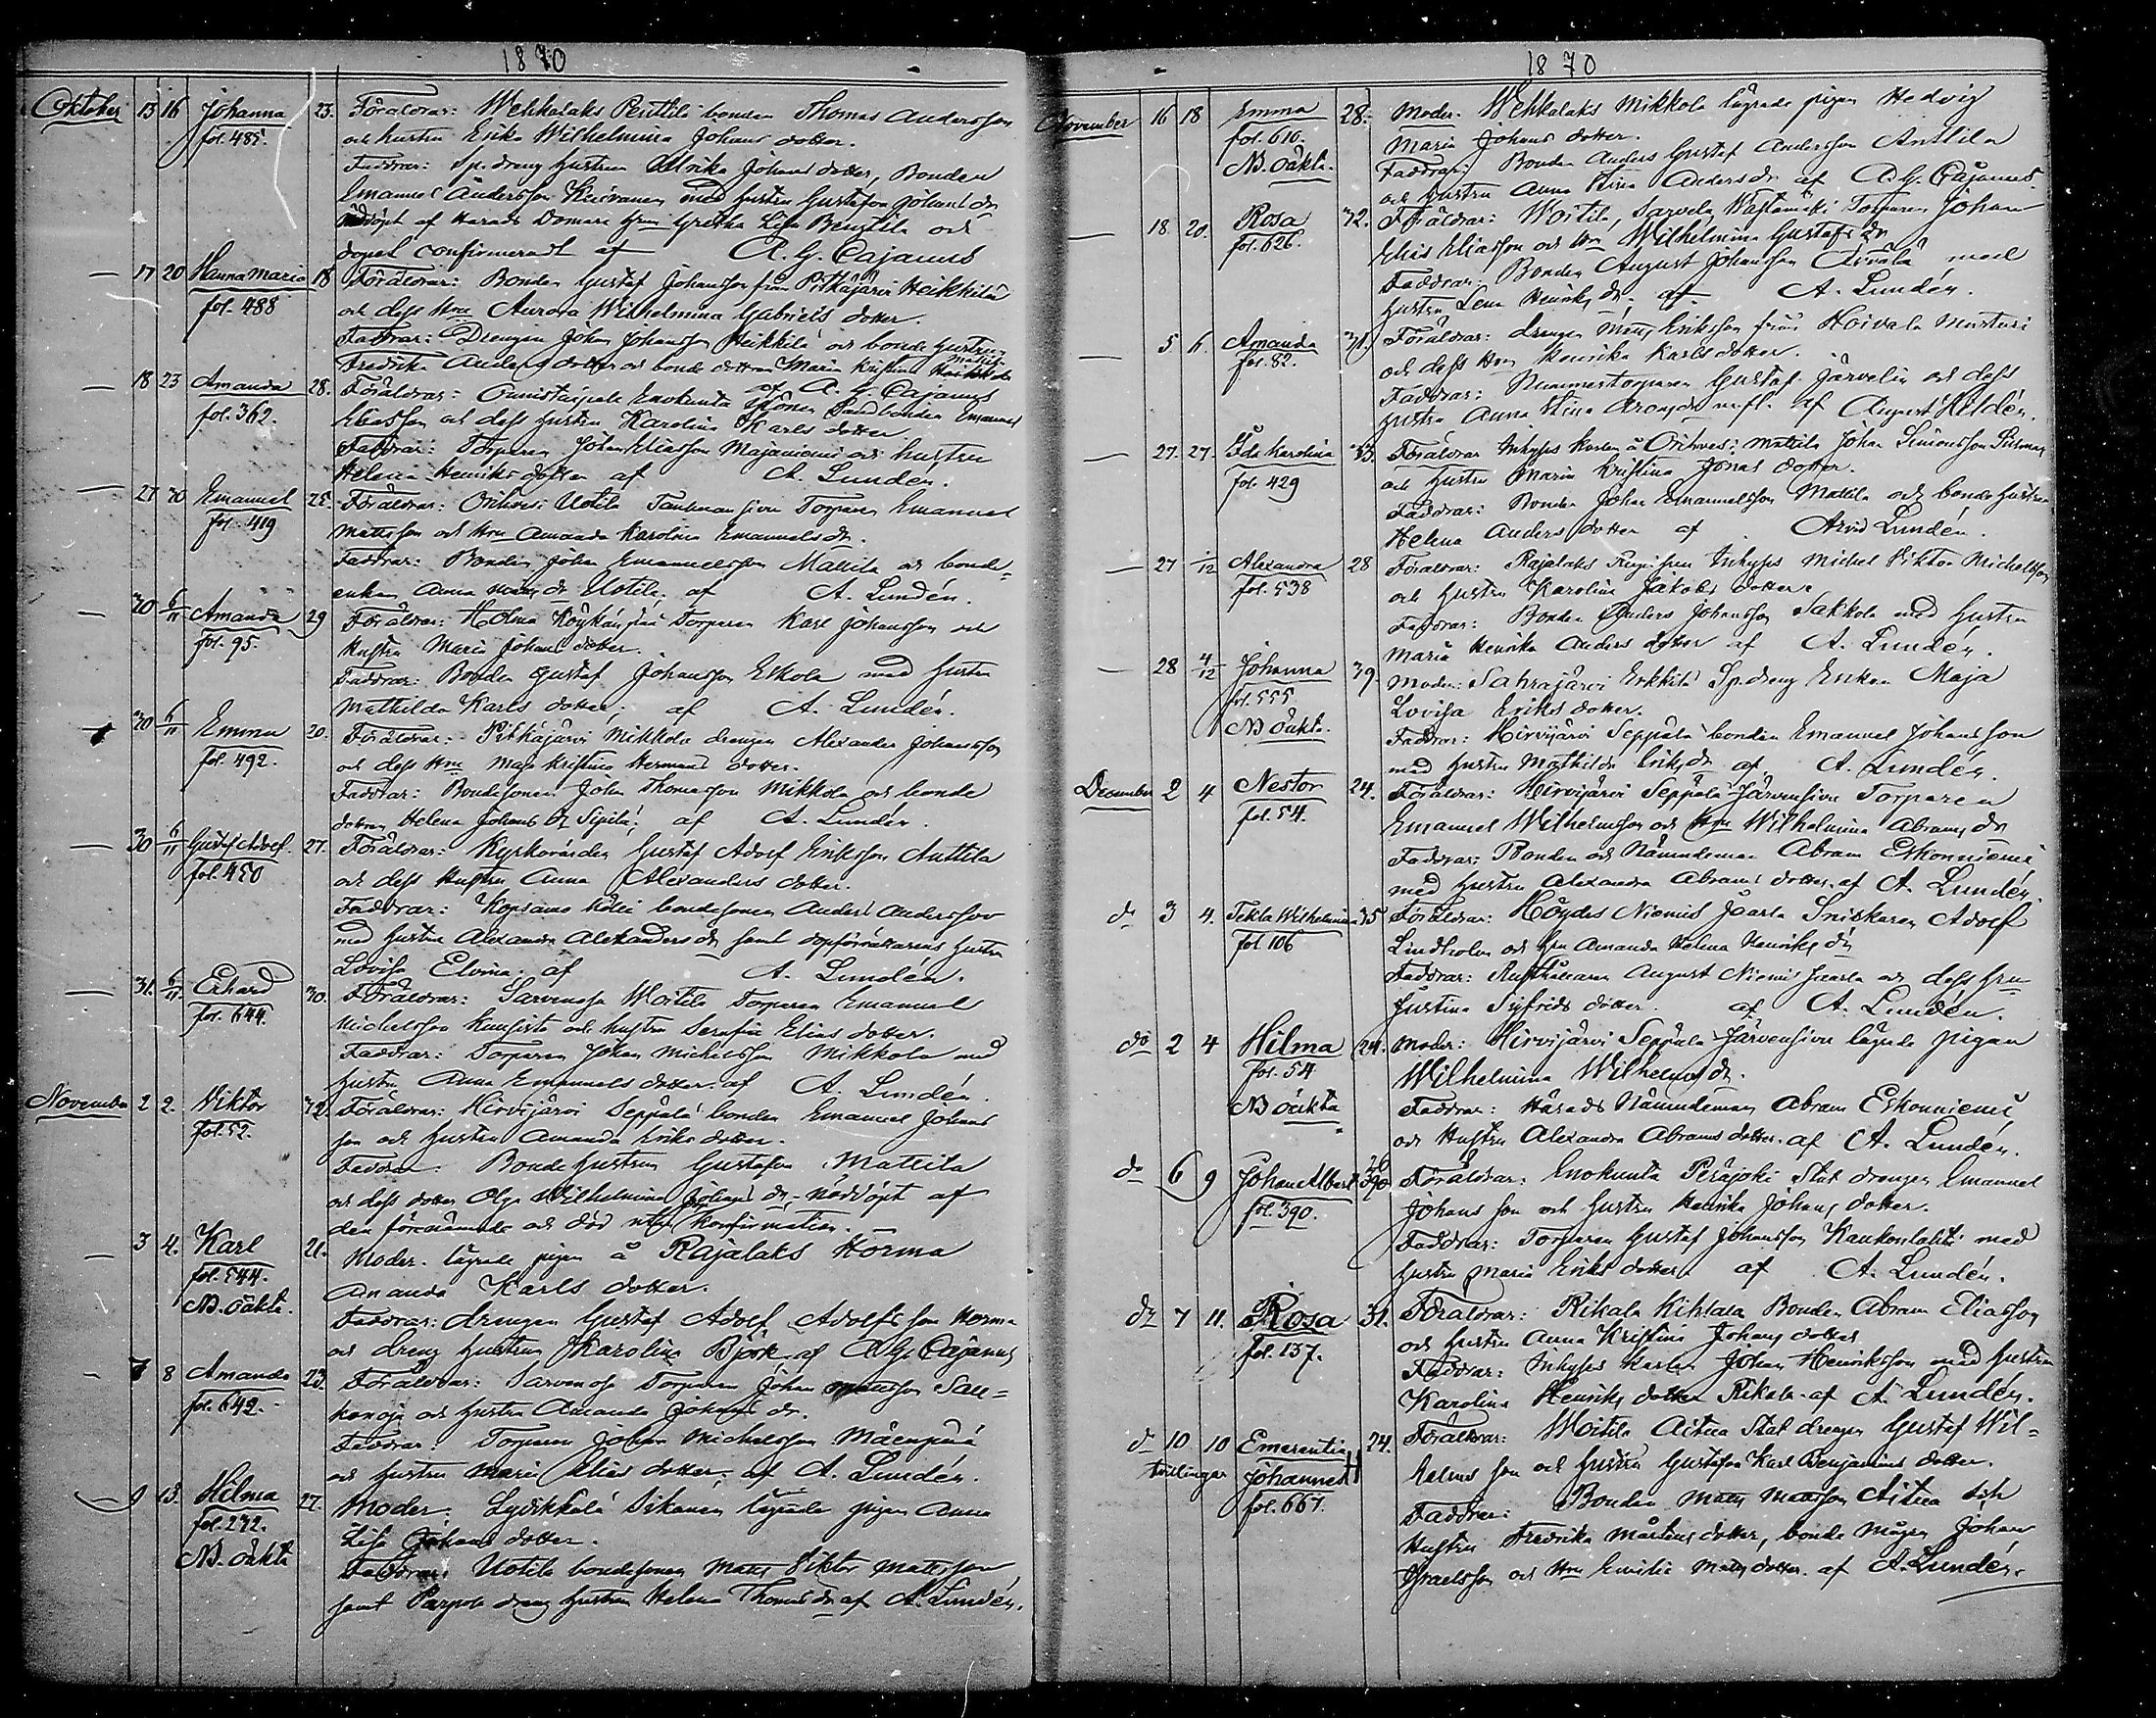 1870
Oktober 13 16 Johanna 23. Föräldrar: Wehkalaks Perttili bonden Thomas Andersson
fol. 485. och hustru Erika Wilhelmina Johans dotter.
Faddrar: Sp. dreng hustrun Ulrika Johans dotter, Bonden
Emanuel Andersson med hustru Gustafva Johans dr
nöddöpt af Härads Domare Hru Gretha Lisa Bengtila och
dopet confirmeradt af A. G. Cajanus
— 17 20 Hanna Maria 18 Föräldrar: Bonden Gustaf Johansson från Pitkäjärvi Heikkilä
fol. 488 och dess Hru Aurora Wilhelmina Gabriels dotter.
Faddrar: Drengen Johan Johansson Heikkilä och bonde hustrun
Fredrika Anders dotter och bonde dottren Maria Kristina
af A. G. Cajanus
— 18 23 Amanda 28. Föräldrar: Onnistaipale Enokunta Landbonden Emanuel
fol. 362. Eliasson och dess hustru Karolina Karls dotter
Faddrar: Torparen Johan Eliasson Majaniemi och hustru
Helena Henriks dotter af A. Lundén.
— 27 30 Emanuel 25. Föräldrar: Orihvesi Uotila Torparen Emanuel
fol. 419 Mattsson och Hru Amanda Karolina Emanuels dr.
Faddrar: Bonden Johan Emanuelsson Mattila och bonde-
enkan Anna Matts dr Uotila. af A. Lundén.
— 30 6/11 Amanda 29 Föräldrar: Holma Torparen Karl Johansson och
fol. 95. hustru Maria Johans dotter.
Faddrar: Bonden Gustaf Johansson Eskola med hustru
Mathilda Karls dotter. af A. Lundén.
30 6/11 Emma 20. Föräldrar: Pitkäjärvi Mikkola drengen Alexander Johansson
fol. 492. och dess Hru Maja Kristina Hermans dotter.
Faddrar: Bondesonen Johan Thomasson Mikkola och bonde
dottren Helena Johans dr Sipilä. af A. Lundén.
— 30 6/11 Gustaf Adolf. 27. Föräldrar: Kyrkovärden Gustaf Adolf Eriksson Anttila
fol. 450 och dess hustru Anna Alexanders dotter.
Faddrar: Kopsamo Kölli bondesonen Anders Andersson
med hustru Alexandra Alexanders dr samt dopförrättarens hustru
Lovisa Elvina. af A. Lundén.
— 31. 6/11 Erhard 30. Föräldrar: Sarvenoja Woitila Torparen Emanuel
fol. 644. Michelsson och hustru Serafia Elias dotter.
Faddrar: Torparen Johan Michelsson Mikkola med
hustru Anna Emanuels dotter. af A. Lundén.
November 2 2. Viktor 32 Föräldrar: Hirvijärvi Seppälä bonden Emanuel Johans
fol. 52. son och hustru Amanda Eriks dotter.
Faddrar. Bonde hustrun Gustafva Mattila
och dess dotter Olga Wilhelmina Johans dr, nöddöpt af
den förenämnda och död utan konfirmation.
— 3 4. Karl 21. Moder. lägrade pigan å Rajalaks Horma
fol. 544. Amanda Karls dotter.
NB. oäkta. Faddrar: drengen Gustaf Adolf Adolfs son Horma
och dreng hustrun Karolina Björk af A. G. Cajanus
— 7 8 Amanda 23. Föräldrar: Sarvenoja Torparen Johan Mattsson Sau-
fol. 642. kanoja och hustru Amanda Johans dr.
Faddrar: Torparen Johan Michelsson Mäenpää
och hustru Maria Elias dotter. af A. Lundén.
— 9 13. Hilma 27. Moder. Lyöikkälä Sikanen lägrade pigan Anna
fol. 272. Lisa Johans dotter.
NB. oäkta Faddrar: Uotila bondesonen Matts Viktor Mattsson
samt Parpola dreng hustrun Helena Thomas dr af A. Lundén.
1870
November 16 18 Emma 28. Moder. Wehkalaks Mikkola lägrade pigan Hedvig
fol. 610. Maria Johans dotter.
NB. oäkta. Faddrar: Bonden Anders Gustaf Andersson Anttila
och hustru Anna Stina Anders dr. af A. G. Cajanus.
— 18 20. Rosa 32. Föräldrar: Woitila, Sarvela Torparen Johan
fol. 626. Elias Eliasson och Hru Wilhelmina Gustafs dr
Faddrar: Bonden August Johansson Arvola med
hustru Lena Henriks dr. af A. Lundén.
— 5 6. Amanda 31. Föräldrar: drengen Matts Eriksson från Hoivala Musturi
fol. 82. och dess Hru Henrika Karls dotter.
Faddrar: Nummertorparen Gustaf Järvelin och dess
hustru Anna Stina Arons dr m. fl. af August Heldén.
— 27. 27. Ida Karolina 33. Föräldrar Inhyses karlen å Orihvesi Mattila Johan Simonsson
fol. 429 och hustru Maria Kristina Jonas dotter.
Faddrar: Bonden Johan Emanuelsson Mattila och bonde hustrun
Helena Anders dotter af Arvid Lundén.
— 27 1/12 Alexandra 28 Föräldrar: Rajalaks Inhyses Michel Viktor Michelsson
fol. 538 och hustru Karolina Jakobs dotter.
Faddrar: Bonden Anders Johansson Sakkola med hustru
Maria Henrika Anders dotter af A. Lundén.
— 28 4/12 Johanna 39. Moder: Sahrajärvi Erkkilä Sp. dreng Enkan Maja
fol. 555 Lovisa Eriks dotter.
NB oäkta. Faddrar: Hirvijärvi Seppälä bonden Emanuel Johansson
med hustru Mathilda Eriks dr af A. Lundén.
December 2 4 Nestor 24. Föräldrar: Hirvijärvi Seppälä Järvensivu Torparen
fol. 54. Emanuel Wilhelmsson och Hru Wilhelmina Abrams dr
Faddrar: Bonden och Nämndeman Abram Eskonniemi
med hustru Alexandra Abrams dotter. af A. Lundén.
do 3 4. Tekla Wilhelmina 35 Föräldrar: Höydes Niemis Jaarla Snickaren Adolf
fol 106 Lindholm och Hru Amanda Helena Henriks dr
Faddrar: Rusthållaren August Niemis Jaarla och dess Hru
Justina Sigfrids dotter. af A. Lundén.
do 2 4 Hilma 24. Moder: Hirvijärvi Seppälä Järvensivu lägrade pigan
fol. 54 Wilhelmina Wilhelms dr.
NB oäkta Faddrar: Härads Nämndeman Abram Eskonniemi
och hustru Alexandra Abrams dotter. af A. Lundén.
do 6 9 Johan Albert Föräldrar: Enokunta Peräjoki Stat drengen Emanuel
fol. 390. Johans son och hustru Henrika Johans dotter.
Faddrar: Torparen Gustaf Johansson med
hustru Maria Eriks dotter af A. Lundén.
do 7 11. Rosa 31. Föräldrar: Rikala Kihlala Bonden Abram Eliasson
fol. 137. och hustru Anna Kristina Johans dotter
Faddrar: Inhyses karlen Johan Henriksson med hustru
Karolina Henriks dotter Rikala. af A. Lundén.
do 10 10 Emerentia 24. Föräldrar: Woitila Aitua Stat drengen Gustaf Wil-
tvillingar Johannes helms son och hustru Gustafva Karl Benjamins dotter.
fol. 667. Faddrar: Bonden Matts Mattsson Aitua och
hustru Fredrika Mårtens dotter, bonde mågen Johan
Israelsson och Hru Emilia Matts dotter. af A. Lundén.